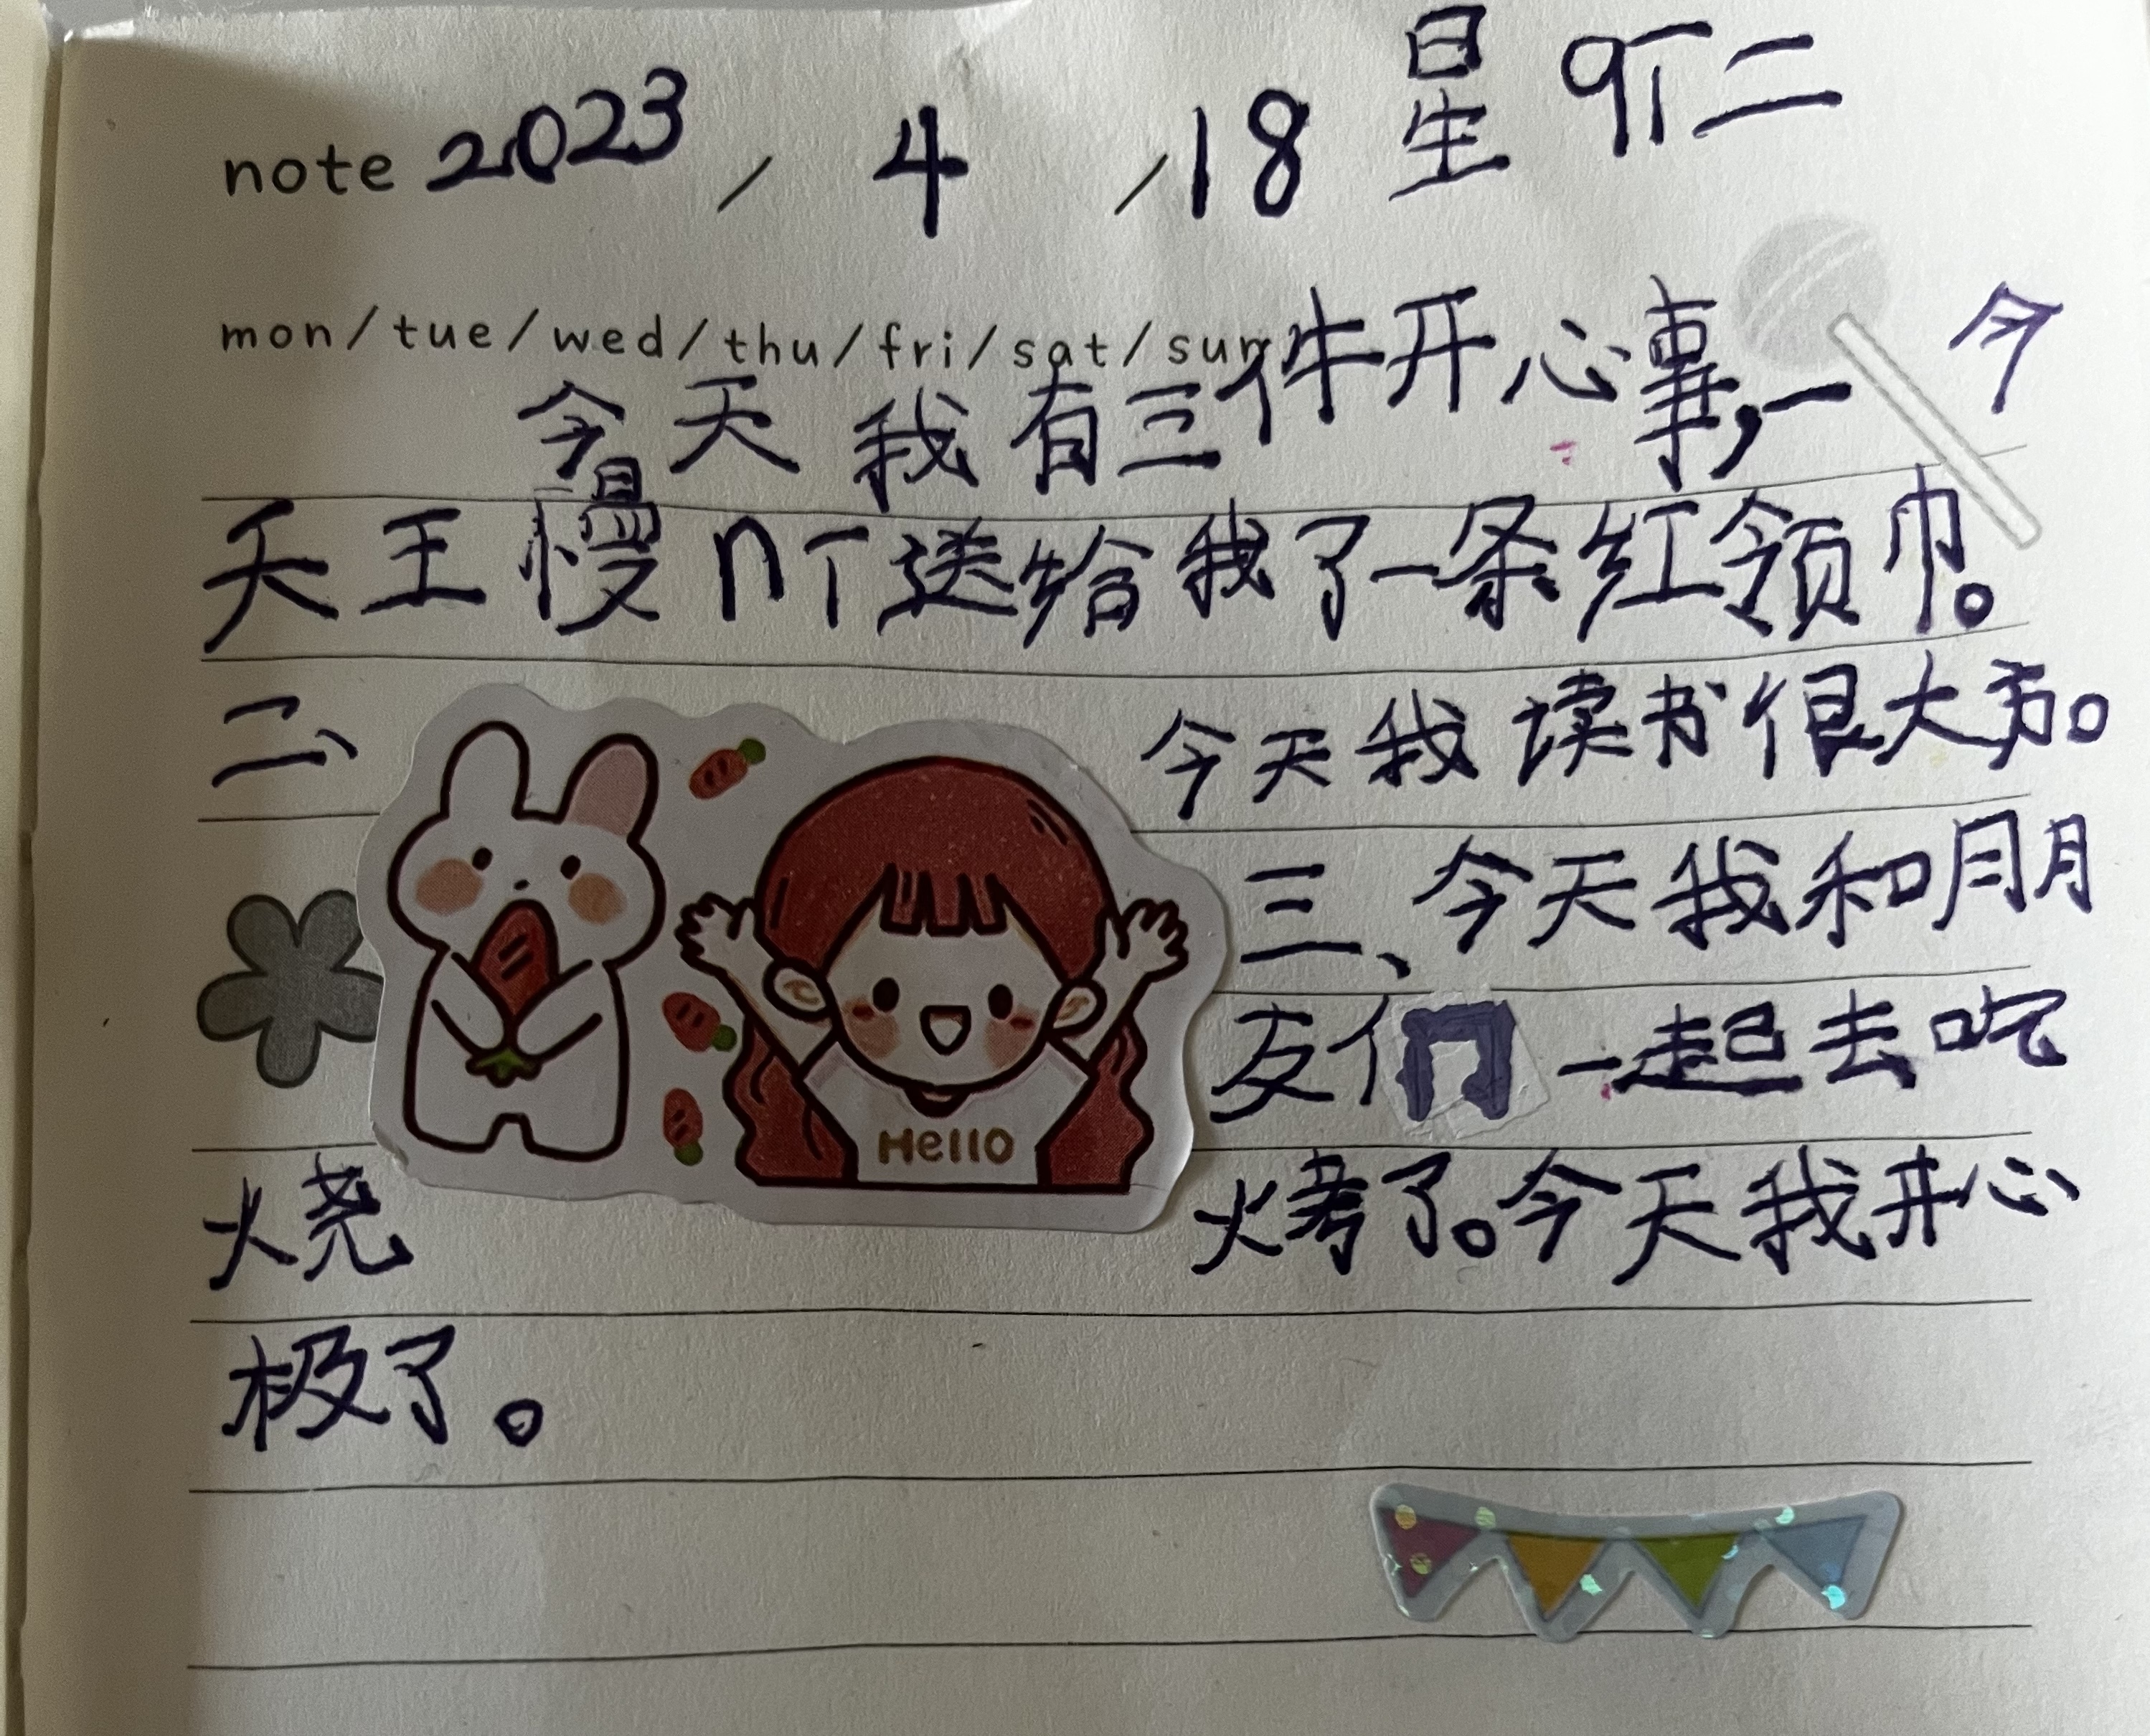 note 2023 / 4 / 18 星 qT 二
mon/tue/wed/thu/fri/sat/sun
今天我有三件开心事,一 今
天王慢nT送给我了一条红领巾。
二、 今天我读书很大声。
三、今天我和朋
友们一起去吃
火烧 火考了。今天我开心
极了。
Hello